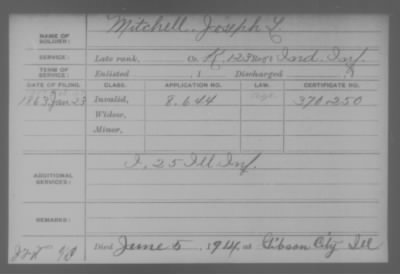 Mitchell, Joseph L.
NAME OF SOLDIER:
SERVICE: Late rank, Co. K, 123 Reg't Ind. Inf.
TERM OF SERVICE: Enlisted , 1 Discharged , 1
DATE OF FILING. CLASS. APPLICATION NO. LAW. CERTIFICATE NO.
1863 Jan 23 Invalid, 8.644 370.250
Widow,
Minor,
ADDITIONAL SERVICES: I, 25 Ill Inf.
REMARKS:
Died June 5, 1914, at Gibson City Ill